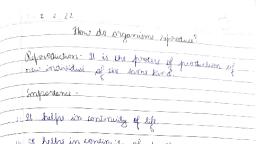 2 2 22
How do organisms reproduce?
Reproduction:- It is the process of production of
new individual of the same kind.
Importance:-
1. It helps in continuity of life.
It helps in